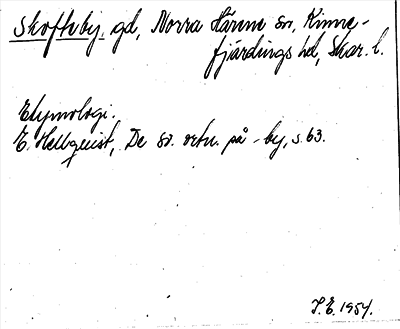 Skofteby, gd, Norra Härene sn, Kinne-
fjärdings hd, Skar. l.
Etymologi.
E. Hellquist, De sv. ortn. på -by, s. 63.
I.E. 1954.